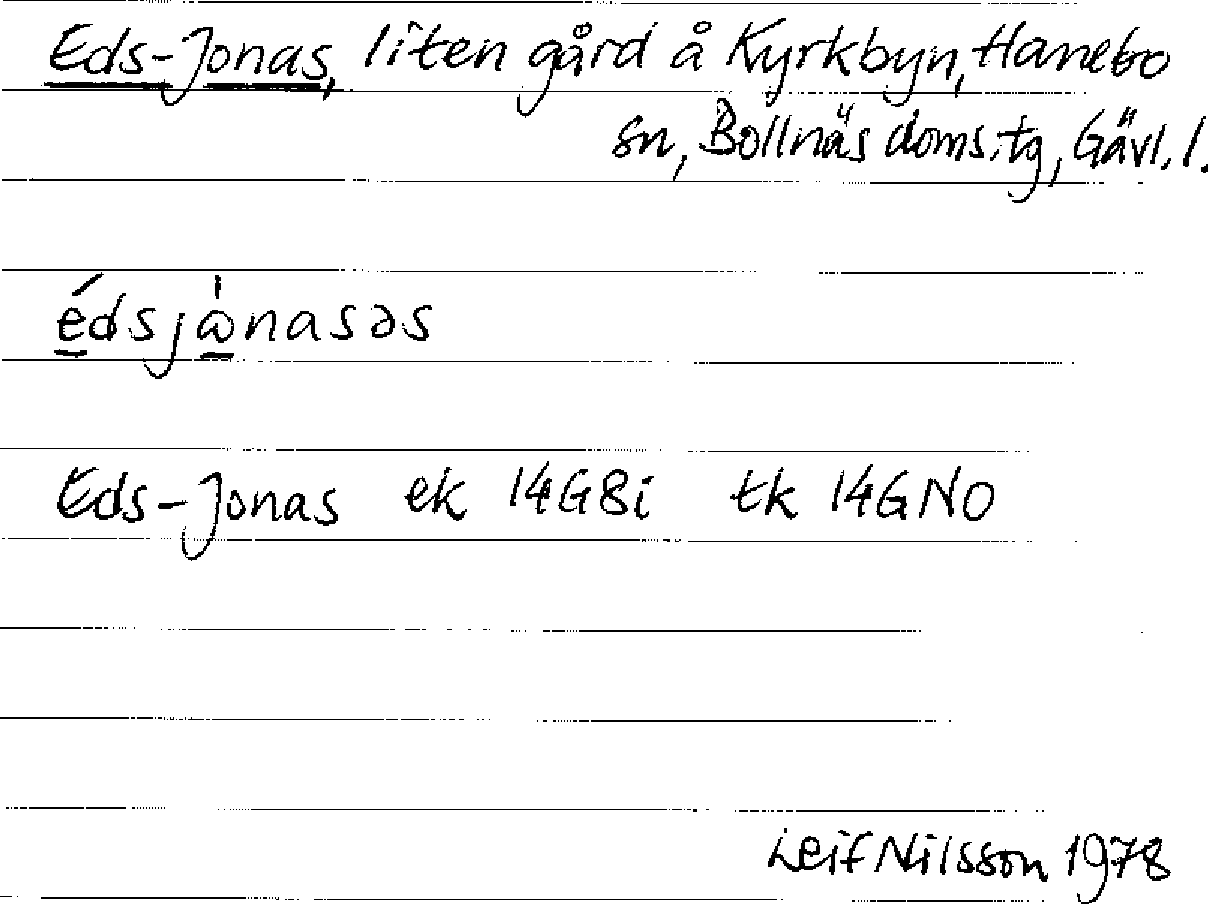 Eds-Jonas, liten gård å Kyrkbyn, Hanebo
sn, Bollnäs doms.tg, Gävl. l.
édsjɷ̀nasəs
Eds-Jonas ek 14G8i tk 14GNO
Leif Nilsson 1978